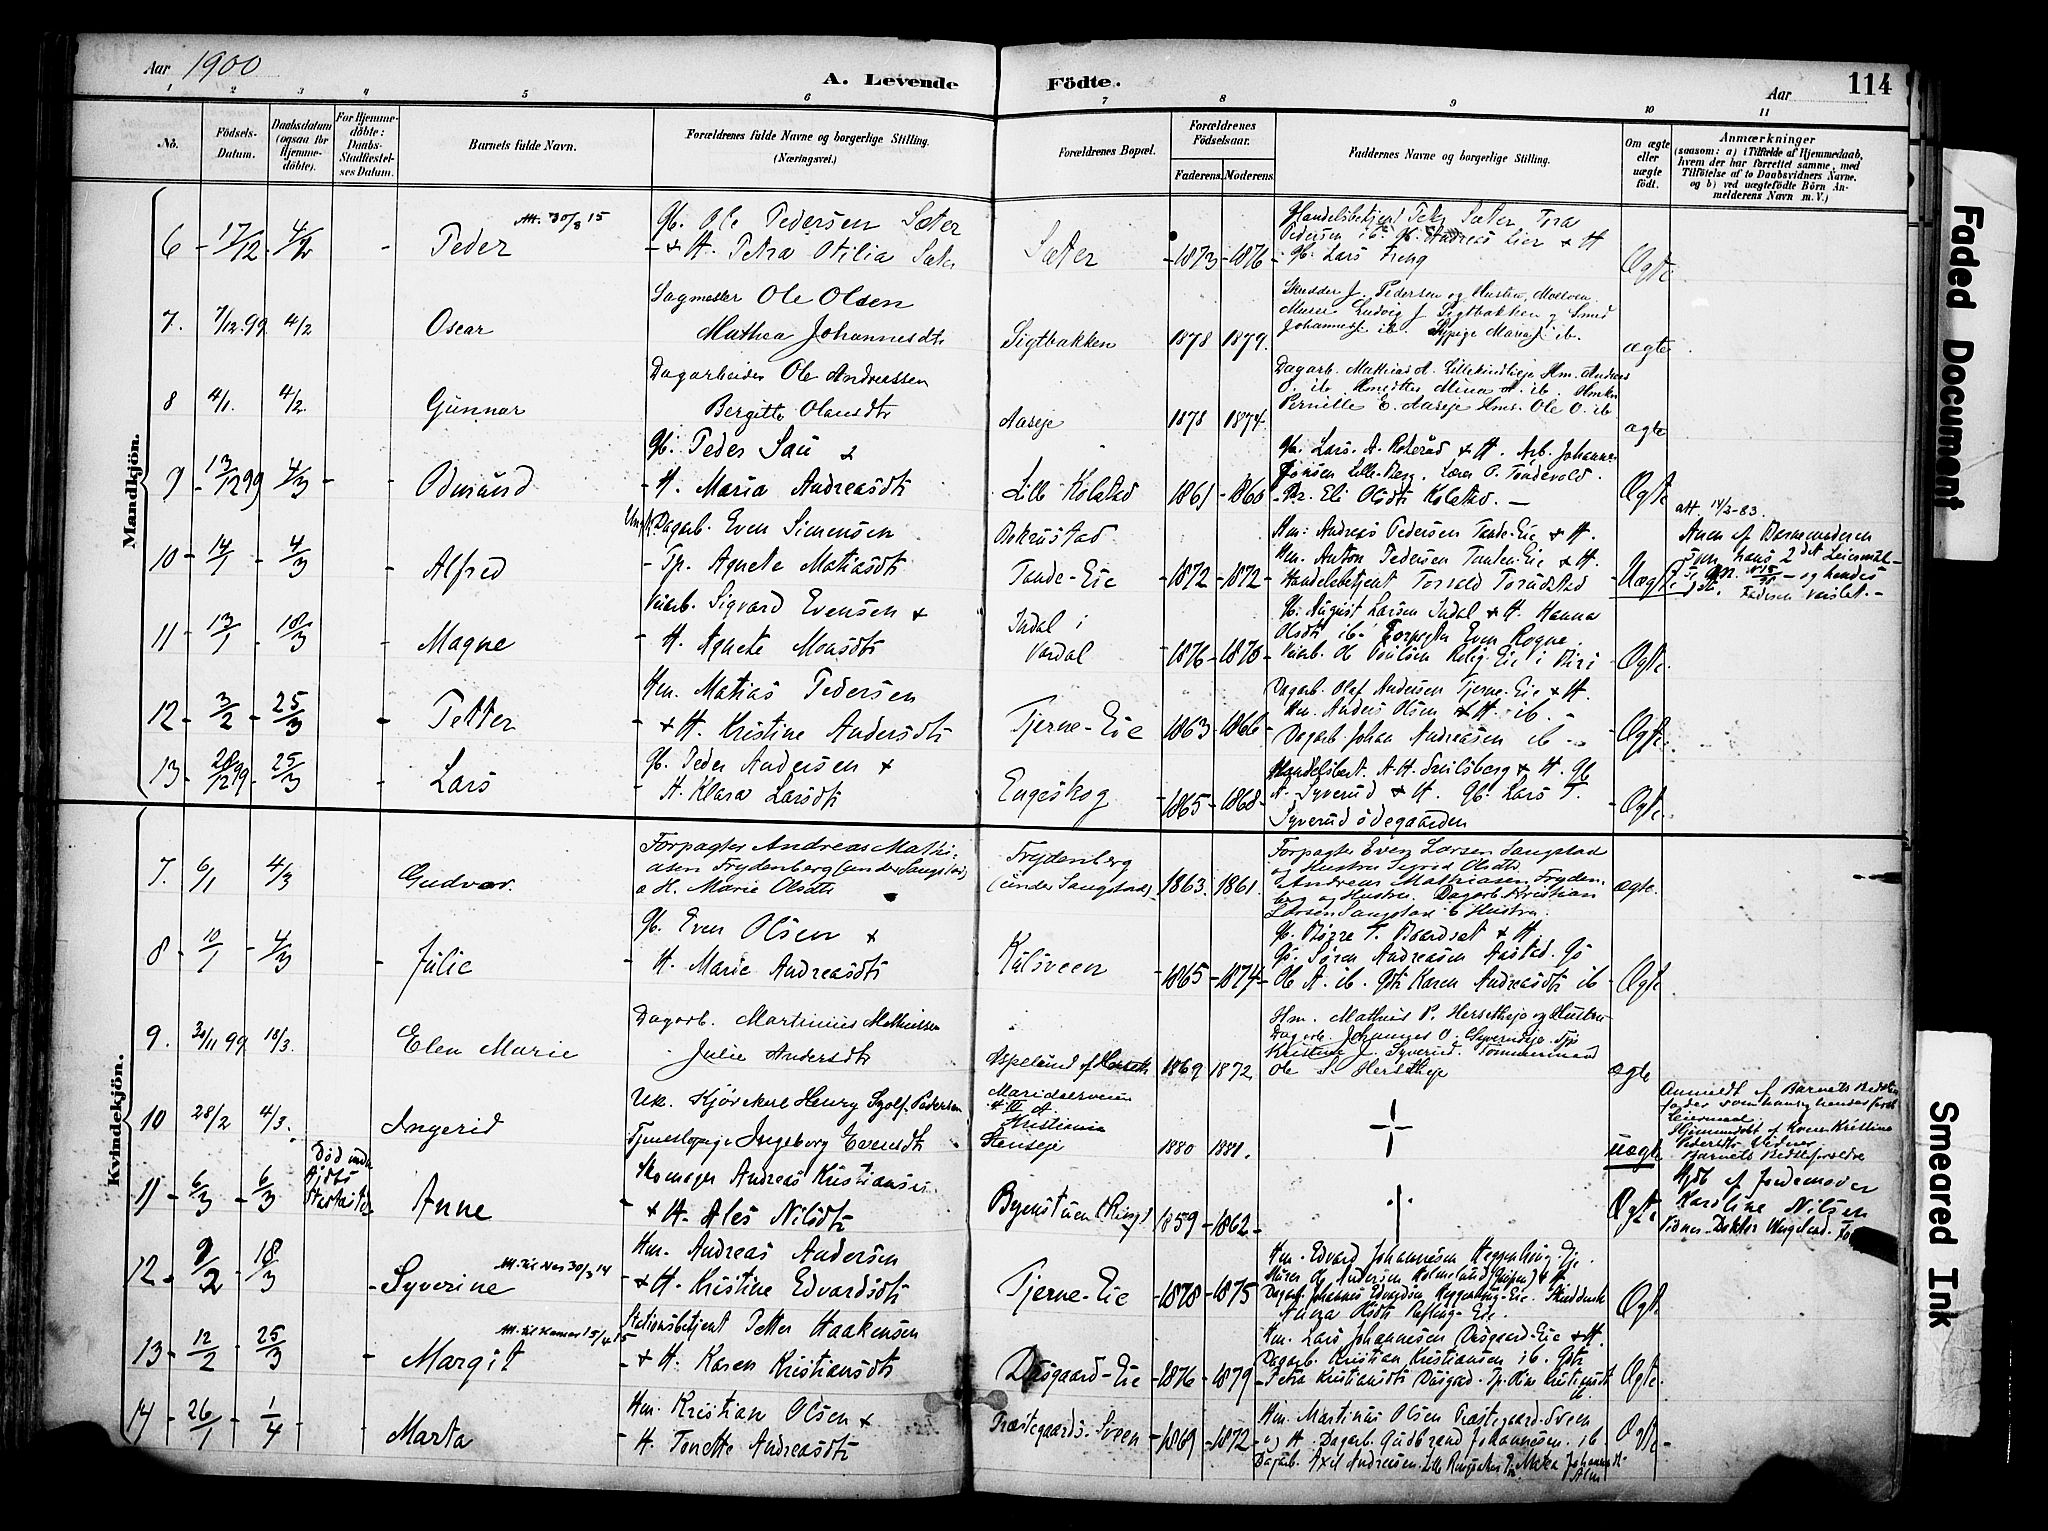 Aar 1900
A. Levende Födte.
Aar
114
1 2 3 4 5 6 7 8 9 10 11
No.
Födsels-Datum.
Daabsdatum (ogsaa for Hjemmedöbte).
For Hjemmedöbte: Daabs-Stadfæstelses Datum.
Barnets fulde Navn.
Forældrenes fulde Navne og borgerlige Stilling.
(Næringsvei.)
Forældrenes Bopæl.
Forældrenes Födselsaar.
Faderens. Moderens.
Faddernes Navne og borgerlige Stilling.
Om ægte eller uægte födt.
Anmærkninger
(saasom: a) i Tilfælde af Hjemmedaab, hvem der har forrettet samme, med Tilföielse af to Daabsvidners Navne. og b) ved uægtefödte Börn Anmelderens Navn m. V.)
Mandkjön.
6 17/12 4/2 Peder Att. 30/8 15
Gb. Ole Pedersen Sæter
+ H. Petra Otilia Sæter
Sæter 1873 1876
Handelsbetjent Peter Sæter
Pedersen ib. Gb. Andreas Lier + H
Gb. Lars Freng
Ægte
7. 7/12 99 4/2 Oscar
Sagmester Ole Olsen
Mathea Johannesdtr
Sigtbakken 1878 1879.
Skrædder J. Pedersen og Hustru
Murer Ludvig J. Sigtbakken
Johannes ib. Pige ib.
ægte
8 4/1. 4/2. Gunnar
Dagarbeider Ole Andreassen
Bergitte Olausdtr
Aaseje 1878 1874.
Dagarb. Mathias A. Hm. Andreas
O. ib. Mina A. ib.
Pernille E. Aaseje Hms. Ole O. ib
ægte
9 13/12 99 4/3 Odmund
Gb. Peder Sau &
H. Maria Andreasdtr
Lille Kolstad 1861 1860
Gb. Lars. A. Roterud + H. Arb. Johannes
Jönsen Lille-Berg. Lærer O. Tandevold.
Pr. Eli Olsdtr Kolstad.
Ægte
att. 14/2-83.
10 14/1 4/3 Alfred
Ungk. Dagarb. Even Simensen
Tp. Agnete Matiasdtr
Onkrustad
Tande-Eie 1872 1872
Hm: Andreas Pedersen Tande-Eie + H.
Hm. Anton Pedersen Eie + H.
Handelsbetjent Torvald
Uægte
Anm. af Barnemoderen
hans 2det Leiermaal
og hendes
11 13/1 18/3 Magne
Veiarb. Sigvard Evensen +
H. Agnete Monsdtr
Indal i
Vardal 1876 1870
Gb: August Larsen Indal + H. Hanna
Olsdtr ib. Forpagter Even Rogne.
Veiarb. Ole Poulsen Eie i Biri
Ægte.
12 3/2 25/3 Petter
Hm. Matias Pedersen
+ H. Kristine Andersdtr
Tjerne-Eie 1863 1866
Dagarb. Olaf Andersen Tjerne-Eie + H.
Hm. Anders Olsen + H. ib.
Dagarb. Johan Andreasen ib
Ægte.
13 28/12 99 25/3 Lars
Gb. Peder Andersen +
H. Klara Larsdtr
Engeskog 1865 1868
Handelsbest. A. H. Smilsberg + H. Gb
A. Syverud + H. Gb. Lars T.
Syverud ödegaarden
Ægte
Kvindekjön.
7. 6/1 4/3 Gudvor.
Forpagter Andreas Mathiasen Frydenberg (under Sangstad)
o H. Marie Olsdtr
Frydenberg
(under Sangstad) 1863. 1861.
Forpagter Even Larsen Sangstad
og Hustru Sigrid Olsdtr
Andreas Mathiasen Frydenberg og Hustru. Dagarb Kristian
Larsen Sangstad & Hustru.
ægte.
8 10/1 4/3 Julie
Gb. Even Olsen +
H. Marie Andreasdtr
Kulsveen 1865 1874
Gb. Börre T. Baardset + H.
Gs. Sören Andreasen Aastad. Gs
Ole A. ib. Gdtr Karen Andreasdtr ib
Ægte
9. 30/11 99 18/3. Elen Marie
Dagarb. Martinius Mathiesen
Julie Andersdtr
Aspelund af Herseth 1869 1872
Hm. Mathias P. Hersethejе og Hustru
Dagarb. Johannes O. Syverudeje.
Kristine J. Syverud. Tömmermand
Ole S. Herseteje
ægte
10 28/2 4/3. Ingerid
Uk. Kjörekarl Henry Pedersen
Tjenestepige Ingeborg Evensdtr
Maridalsveien
Kristiania
Stenseje 1880 1881.
uægte
Anmeldt af Barnets Bedstefader som hans og hendes förste
Leiermaal
Hjemmedöbt af Karen Kristine
Pedersdtr. Vidner
Barnets Bedsteforældre
11 6/3 6/3 Död Anne
Skomager Andreas Kristiansen
+ H. Ales Nilsdtr
Bymstuen (Rings) 1859 1862
Ægte
Hjdb af Jordemoder
Karoline Nilsen
Vidner. Doktor
12 9/2 18/3 Syverine Att. til Nes 30/3 14
Hm. Andreas Andersen
+ H. Kristine Edvardsdtr
Tjerne-Eie 1878 1875
Hm. Edvard Johannesen
Murer Ole Andersen + H
Dagarb. Johannes Edvardsen Eie.
Olsdtr Eie.
Ægte
13 12/2 25/3 Margit Att. til Hamar 15/4 15
Stationsbetjent Petter Haakensen
+ H. Karen Kristiansdtr
Dæsgaard-Eie 1876 1879
Hm. Lars Johannesen Dæsgaard-Eie + H.
Dagarb. Kristian Kristiansen ib.
Petra Kristiansdtr Dæsgaard.
Ægte.
14 26/1 1/4 Marta
Hm. Kristian Olsen +
H. Tonette Andreasdtr
Præstegaards-Sveen 1869 1872
Hm. Martinus Olsen Præstegaard-Sveen
og H. Dagarb. Gudbrand Johannesen ib
Dagarb. Axel Andresen. Lille
Ægte
Faded Document
Smeared Ink